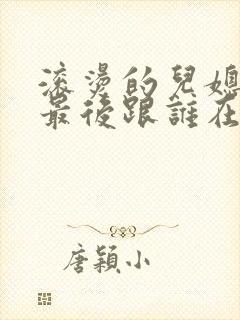 滾燙的兒媳
最後跟誰在
唐穎小